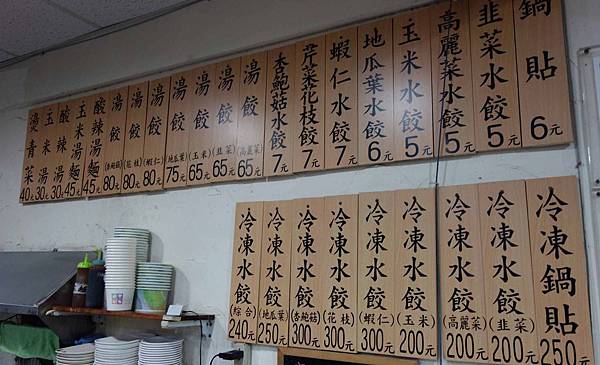 鍋貼6元
韭菜水餃5元
高麗菜水餃5元
玉米水餃5元
地瓜葉水餃6元
蝦仁水餃7元
芹菜花枝餃7元
杏鮑菇水餃7元
湯餃(高麗菜)65元
湯餃(韭菜)65元
湯餃(玉米)65元
湯餃(地瓜葉)75元
湯餃(蝦仁)80元
湯餃(花枝)80元
湯餃(杏鮑菇)80元
酸辣湯麵45元
玉米湯麵45元
酸辣湯30元
玉米湯30元
燙青菜40元
冷凍鍋貼250元
冷凍水餃(韭菜)200元
冷凍水餃(高麗菜)200元
冷凍水餃(玉米)200元
冷凍水餃(蝦仁)300元
冷凍水餃(花枝)300元
冷凍水餃(杏鮑菇)300元
冷凍水餃(地瓜葉)250元
冷凍水餃(綜合)240元